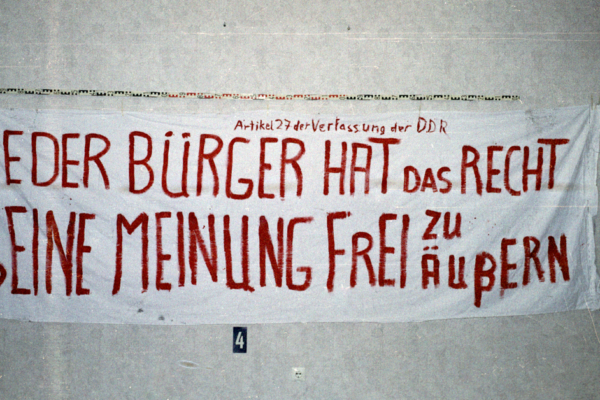 Artikel 27 der Verfassung der DDR
EDER BÜRGER HAT DAS RECHT
EINE MEINUNG FREI ZU ÄUßERN
4